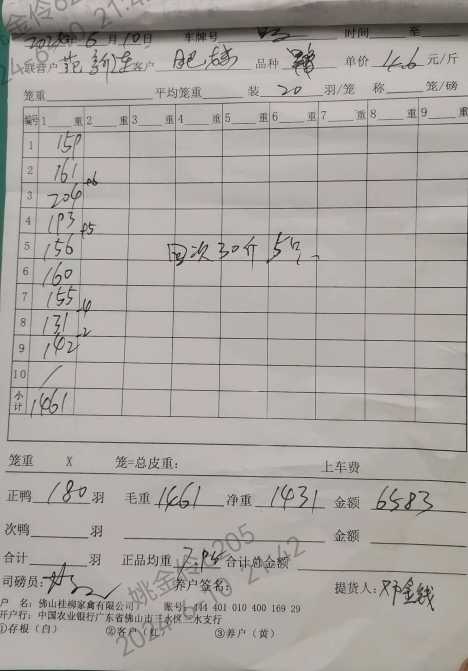 2024年6月10日 车牌号 时间 至
联客户 范新连 客户 肥 品种 单价 4.6 元/斤
笼重 平均笼重 装 20 羽/笼 称 笼/磅
编号 1 重 2 重 3 重 4 重 5 重 6 重 7 重 8 重 9 重
1 159
2 161 +6
3 204
4 193 +5
5 156 回次30斤5只
6 160
7 155 -4
8 131 -2
9 142
10 /
小计 1461
笼重 X 笼=总皮重： 上车费
正鸭 180 羽 毛重 1461 净重 1431 金额 6583
次鸭 羽 金额
合计 羽 正品均重 7.95 合计总金额
司磅员： 养户签名： 提货人：邓金钱
户 名：佛山桂柳家禽有限公司 账号：444 401 010 400 169 29
开户行：中国农业银行广东省佛山市三水区三水支行
①存根（白） ②客户（红） ③养户（黄）
姚金伶6205
2024-6-10 21:42